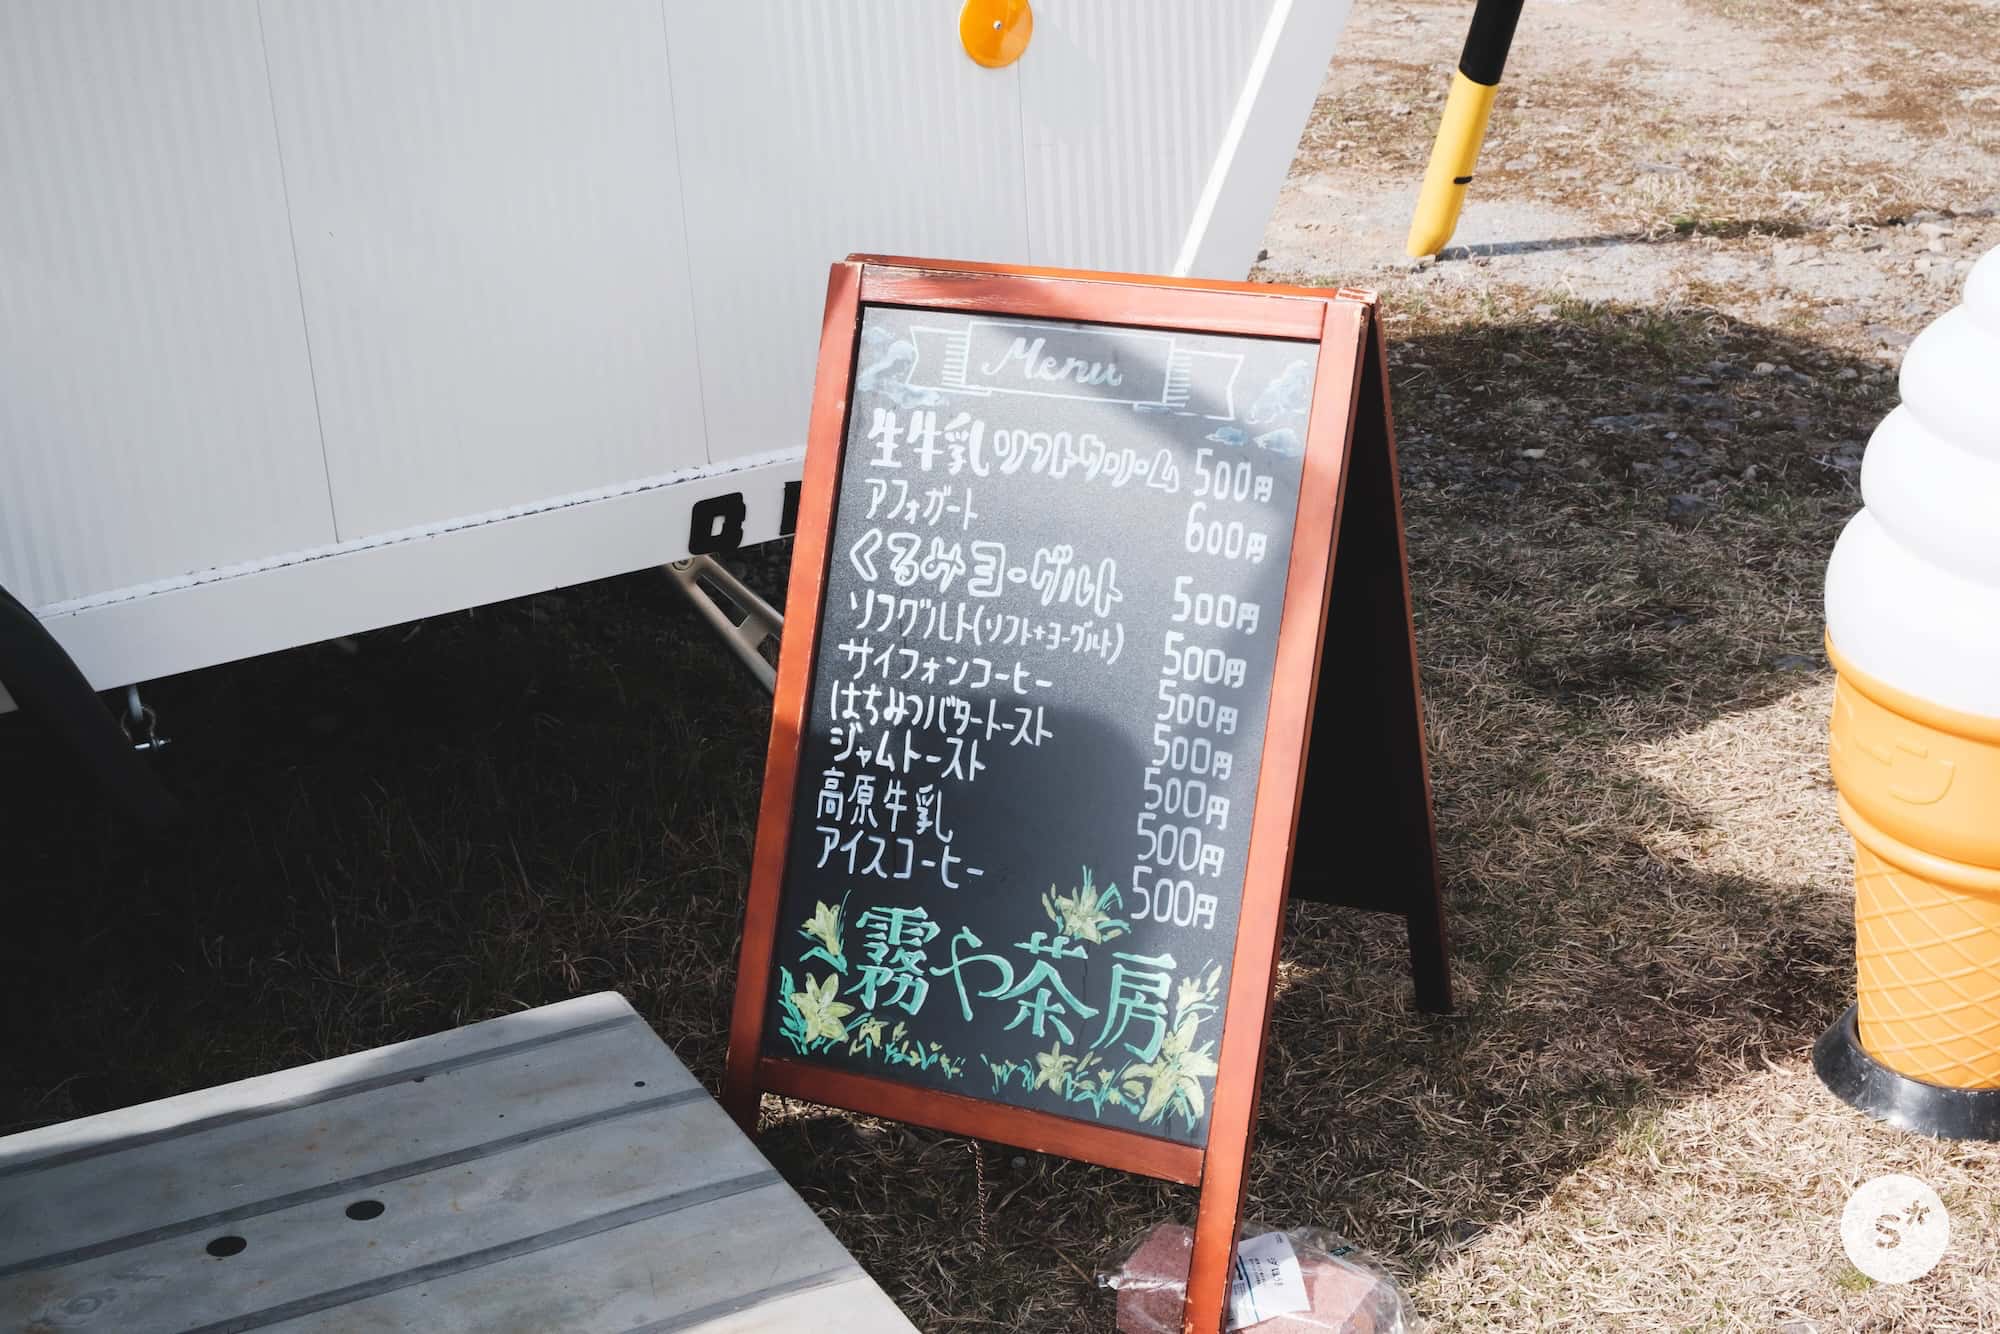 Menu
生牛乳ソフトクリーム 500円
アフォガート 600円
くるみヨーグルト 500円
ソフグルト(ソフト+ヨーグルト) 500円
サイフォンコーヒー 500円
はちみつバタートースト 500円
ジャムトースト 500円
高原牛乳 500円
アイスコーヒー 500円
霧や茶房
S*